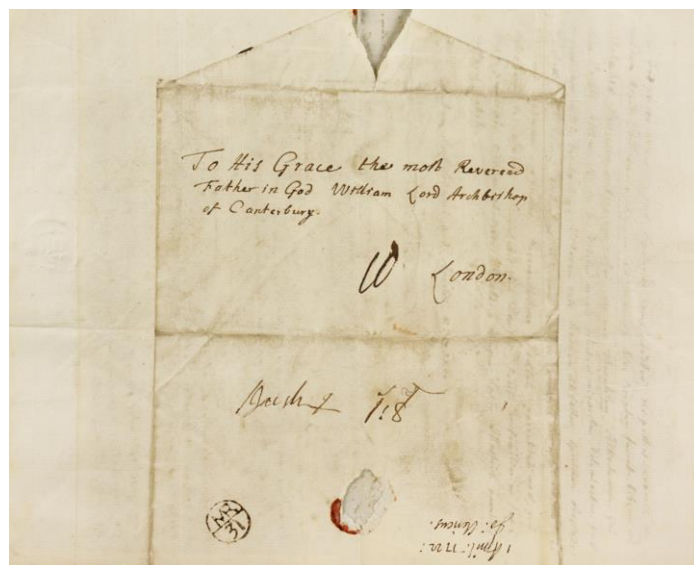 To His Grace the most Reverend
Father in God William Lord Archbishop
of Canterbury.
London.
MR
31
1 April: 1722: